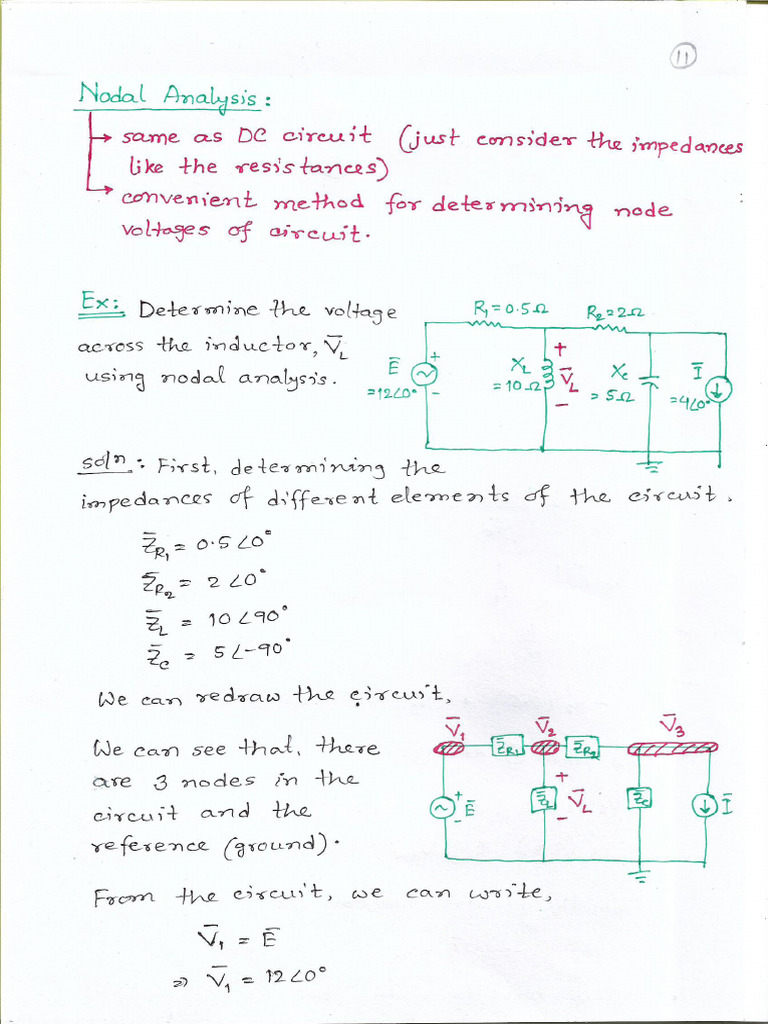 11
Nodal Analysis:
→ same as DC circuit (just consider the impedances
like the resistances)
→ convenient method for determining node
voltages of circuit.
Ex: Determine the voltage
across the inductor, V̄L
using nodal analysis.
R1=0.5Ω R2=2Ω
Ē =12∠0° + -
XL =10Ω + V̄L -
Xc =5Ω
Ī =4∠0°
soln: First, determining the
impedances of different elements of the circuit.
Z̄R1 = 0.5∠0°
Z̄R2 = 2∠0°
Z̄L = 10∠90°
Z̄c = 5∠-90°
We can redraw the circuit,
We can see that, there
are 3 nodes in the
circuit and the
reference (ground).
V̄1 V̄2 V̄3
Z̄R1 Z̄R2
+ Ē -
Z̄L + V̄L -
Z̄c Ī
From the circuit, we can write,
V̄1 = Ē
⇒ V̄1 = 12∠0°